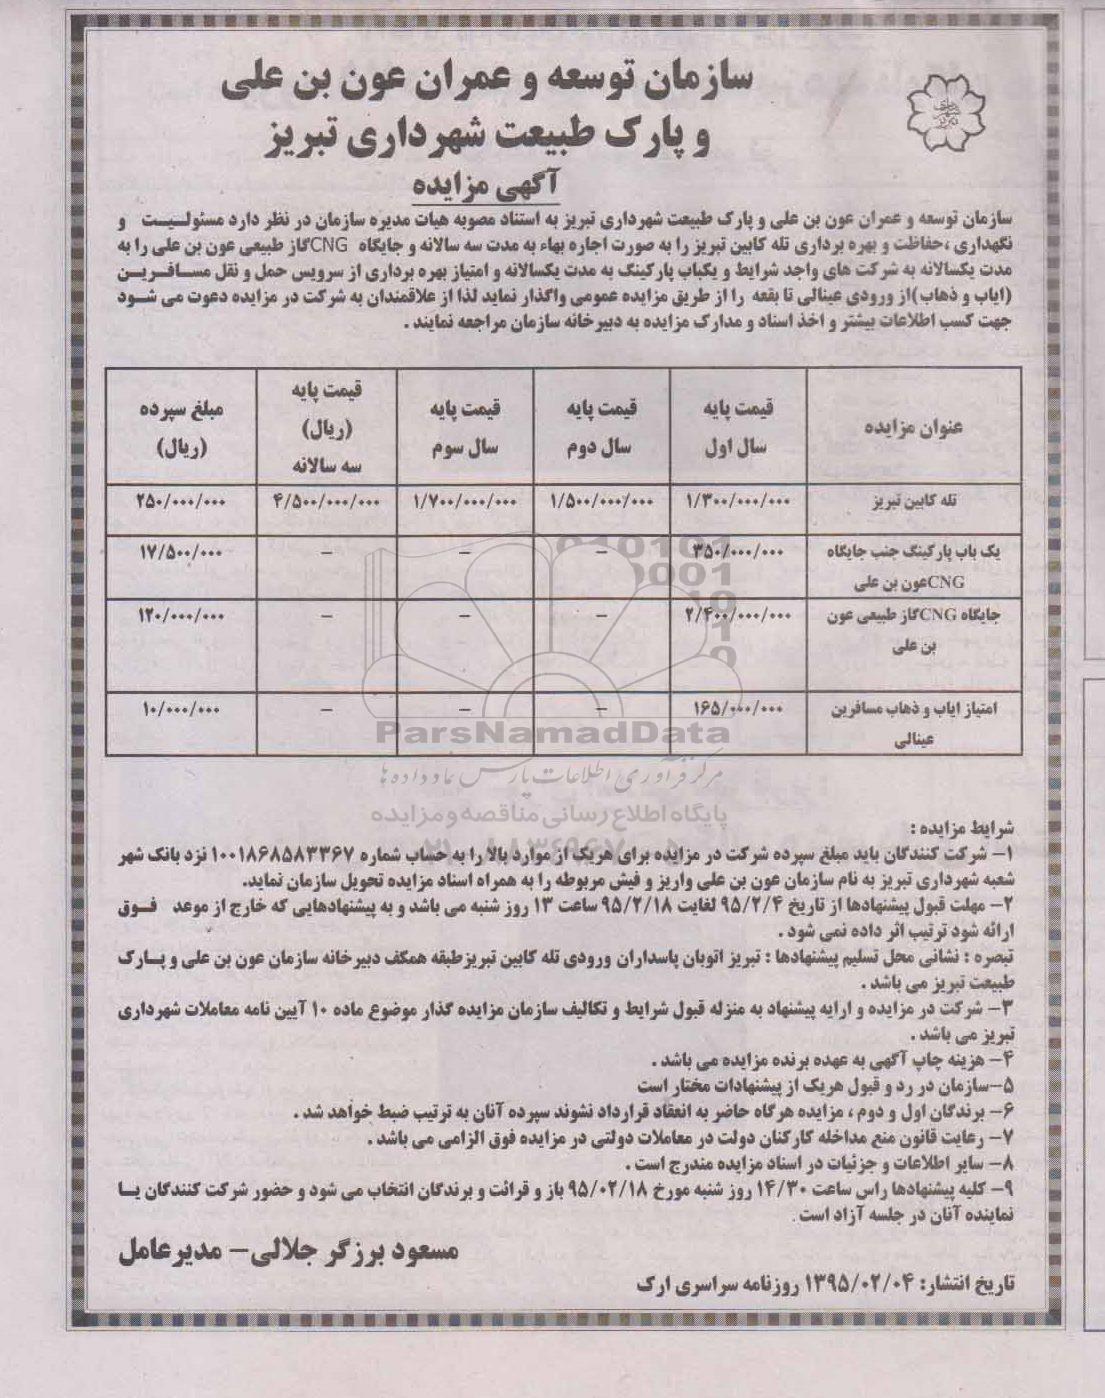 سازمان توسعه و عمران عون بن علی
و پارک طبیعت شهرداری تبریز
آگهی مزایده
سازمان توسعه و عمران عون بن علی و پارک طبیعت شهرداری تبریز به استناد مصوبه هیات مدیره سازمان در نظر دارد مسئولیت و
نگهداری ،حفاظت و بهره برداری تله کابین تبریز را به صورت اجاره بهاء به مدت سه سالانه و جایگاه CNGگاز طبیعی عون بن علی را به
مدت یکسالانه به شرکت های واجد شرایط و یکباب پارکینگ به مدت یکسالانه و امتیاز بهره برداری از سرویس حمل و نقل مسافرین
(ایاب و ذهاب)از ورودی عینالی تا بقعه را از طریق مزایده عمومی واگذار نماید لذا از علاقمندان به شرکت در مزایده دعوت می شود
جهت کسب اطلاعات بیشتر و اخذ اسناد و مدارک مزایده به دبیرخانه سازمان مراجعه نمایند .
عنوان مزایده | قیمت پایه سال اول | قیمت پایه سال دوم | قیمت پایه سال سوم | قیمت پایه (ریال) سه سالانه | مبلغ سپرده (ریال)
تله کابین تبریز | ۱/۳۰۰/۰۰۰/۰۰۰ | ۱/۵۰۰/۰۰۰/۰۰۰ | ۱/۷۰۰/۰۰۰/۰۰۰ | ۴/۵۰۰/۰۰۰/۰۰۰ | ۲۵۰/۰۰۰/۰۰۰
یک باب پارکینگ جنب جایگاه CNGعون بن علی | ۳۵۰/۰۰۰/۰۰۰ | – | – | – | ۱۷/۵۰۰/۰۰۰
جایگاه CNGگاز طبیعی عون بن علی | ۲/۴۰۰/۰۰۰/۰۰۰ | – | – | – | ۱۲۰/۰۰۰/۰۰۰
امتیاز ایاب و ذهاب مسافرین عینالی | ۱۶۵/۰۰۰/۰۰۰ | – | – | – | ۱۰/۰۰۰/۰۰۰
ParsNamadData
مرکز فرآوری اطلاعات پارس نماد داده ها
پایگاه اطلاع رسانی مناقصه و مزایده
شرایط مزایده :
۱– شرکت کنندگان باید مبلغ سپرده شرکت در مزایده برای هریک از موارد بالا را به حساب شماره ۱۰۰۱۸۶۸۵۸۳۳۶۷ نزد بانک شهر
شعبه شهرداری تبریز به نام سازمان عون بن علی واریز و فیش مربوطه را به همراه اسناد مزایده تحویل سازمان نماید.
۲– مهلت قبول پیشنهادها از تاریخ ۹۵/۲/۴ لغایت ۹۵/۲/۱۸ ساعت ۱۳ روز شنبه می باشد و به پیشنهادهایی که خارج از موعد فوق
ارائه شود ترتیب اثر داده نمی شود .
تبصره : نشانی محل تسلیم پیشنهادها : تبریز اتوبان پاسداران ورودی تله کابین تبریزطبقه همکف دبیرخانه سازمان عون بن علی و پارک
طبیعت تبریز می باشد .
۳– شرکت در مزایده و ارایه پیشنهاد به منزله قبول شرایط و تکالیف سازمان مزایده گذار موضوع ماده ۱۰ آیین نامه معاملات شهرداری
تبریز می باشد .
۴– هزینه چاپ آگهی به عهده برنده مزایده می باشد .
۵–سازمان در رد و قبول هریک از پیشنهادات مختار است
۶– برندگان اول و دوم ، مزایده هرگاه حاضر به انعقاد قرارداد نشوند سپرده آنان به ترتیب ضبط خواهد شد .
۷– رعایت قانون منع مداخله کارکنان دولت در معاملات دولتی در مزایده فوق الزامی می باشد .
۸– سایر اطلاعات و جزئیات در اسناد مزایده مندرج است .
۹– کلیه پیشنهادها راس ساعت ۱۴/۳۰ روز شنبه مورخ ۹۵/۰۲/۱۸ باز و قرائت و برندگان انتخاب می شود و حضور شرکت کنندگان یا
نماینده آنان در جلسه آزاد است .
مسعود برزگر جلالی– مدیرعامل
تاریخ انتشار: ۱۳۹۵/۰۲/۰۴ روزنامه سراسری ارک